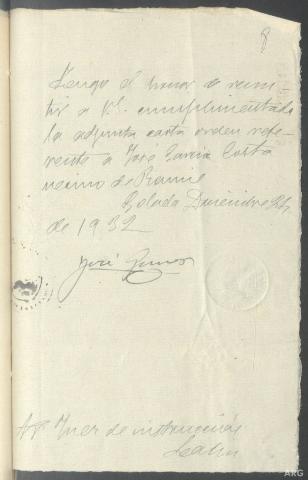 8
Tengo el honor de remi-
tir a V.S. cumplimentada
la adjunta carta orden refe-
rente a José García Costa
vecino de
Golada Diciembre 24
de 1932
José
Sr. Juez de instrucción
Lalín
ARG